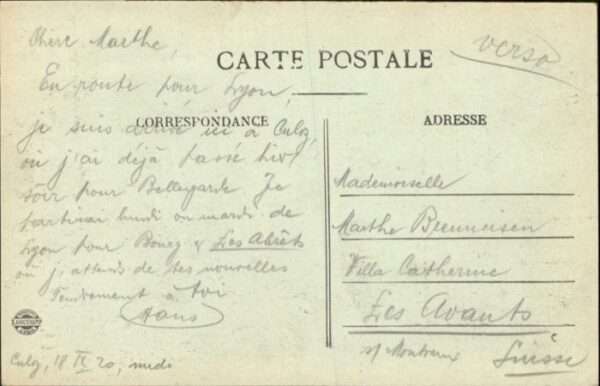 Chère Marthe,
verso
CARTE POSTALE
En route pour Lyon,
CORRESPONDANCE
ADRESSE
je suis arrivé ici à Culoz,
où j'ai déjà passé hier
soir pour Bellegarde. Je
partirai lundi ou mardi de
Lyon pour Bourg & Les Abrets
où j'attends de tes nouvelles
Tendrement à toi
Hans
Culoz, 18 IX 20, midi
Mademoiselle
Marthe
Villa Catherine
Les Avants
s/ Montreux
Suisse